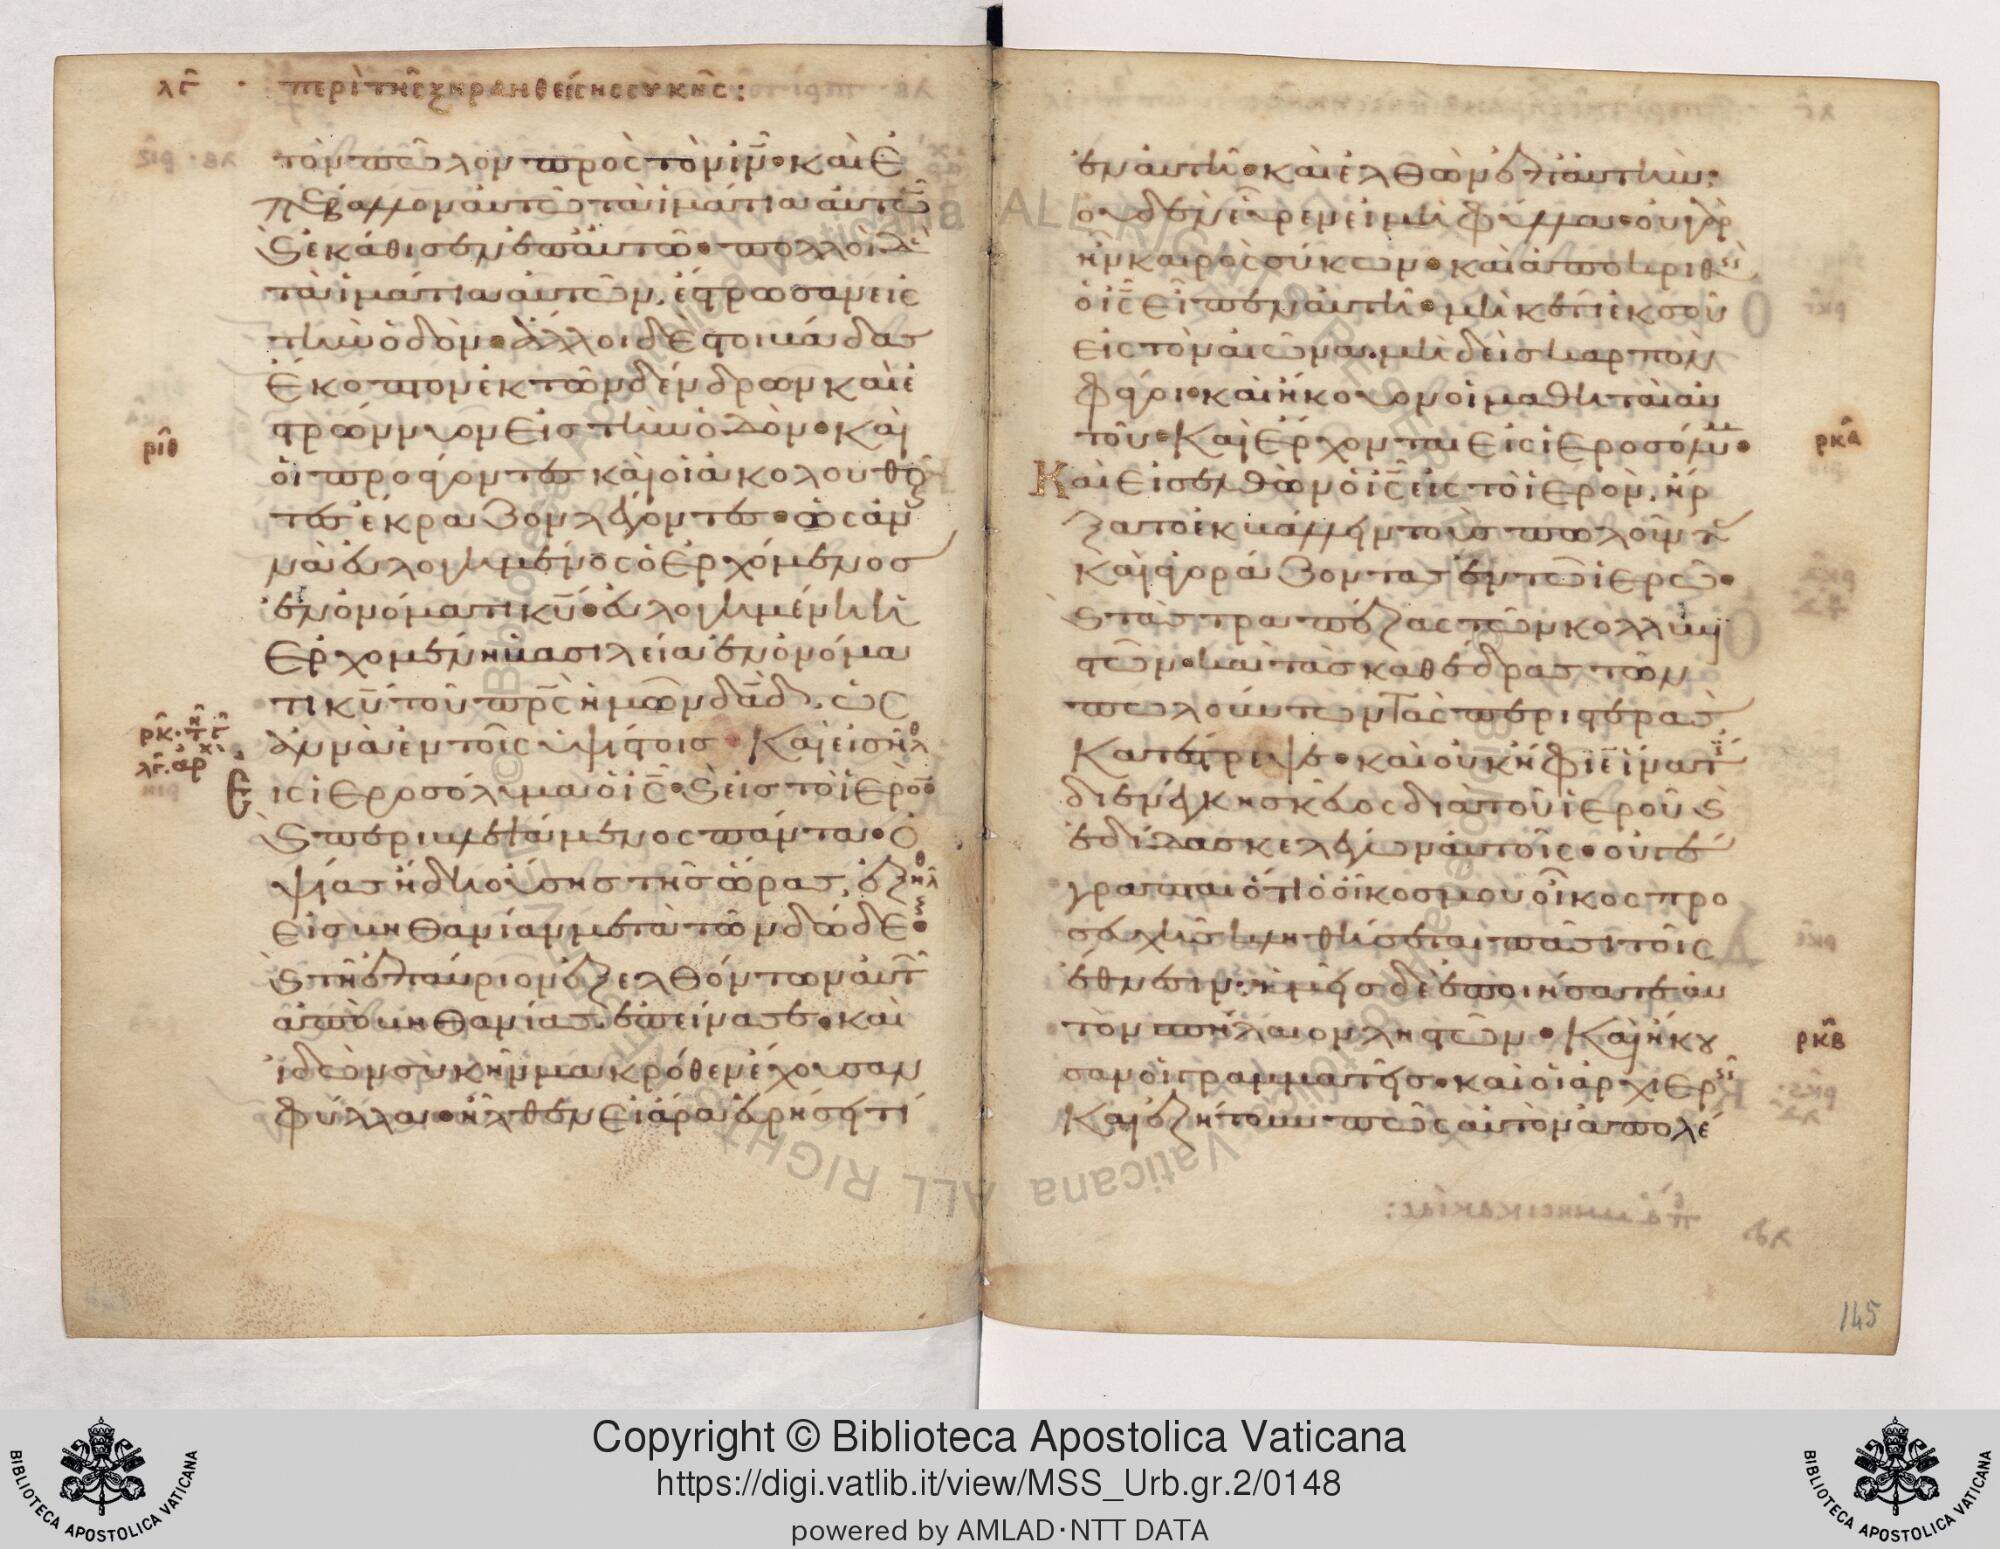 λγ · περὶ τῆς ξηρανθείσης συκῆς:
τὸν πῶλον πρὸς τὸν ἰν̅· καὶ ἐ
πέβαλλον αὐτῶ τὰ ἱμάτια αὐτῶ
κ ἐκάθισεν ἐπ αὐτῶ· πολλοὶ δὲ
τὰ ἱμάτια αὐτῶν, ἔστρωσαν εἰς
τὴν ὁδὸν· ἄλλοι δὲ στοιβάδας
ἔκοπτον ἐκ τῶν δένδρων καὶ ἐ
στρώννυον εἰς τὴν ὁδὸν· καὶ
ριθ
οἱ προάγοντες καὶ οἱ ἀκολουθοῦν
τες ἔκραζον λέγοντες· ὡσαν
νὰ εὐλογημένος ὁ ἐρχόμενος
ἐν ὀνόματι κυ̅· εὐλογημένη ἡ
ἐρχομένη βασιλεία ἐν ὀνόμα
τι κυ̅ τοῦ πρ̅ς ἡμῶν δαδ̅. ὡς
αννὰ ἐν τοῖς ὑψίστοις· Καὶ εἰσῆλθ
ρκ·
λγ. αρχ
Εἰς ἱεροσόλυμα ὁ ις̅· κ εἰς τὸ ἱερὸν
κ περιβλεψάμενος πάντα· ὀ
ψίας ἤδη οὔσης τῆς ὥρας, ἐξῆλθ
εἰς βηθανίαν μετὰ τῶν δώδε·
κ τῆ ἐπαύριον ἐξελθόντων αὐτ
ἀπὸ βηθανίας. ἐπείνασε· καὶ
ἰδὼν συκῆν μακρόθεν ἔχουσαν
φύλλα· ἦλθεν εἰ ἄρα εὑρήσει τί
ἐν αὐτῆ· καὶ ἐλθὼν ἐπ αὐτὴν·
οὐδὲν εὗρεν εἰ μὴ φύλλα· οὐ γὰρ
ἦν καιρὸς σύκων· καὶ ἀποκριθεὶς
ὁ ις̅ εἶπεν αὐτῆ· μηκέτι ἐκ σοῦ
εἰς τὸν αἰῶνα. μηδεὶς καρπὸν
φάγοι· καὶ ἤκουον οἱ μαθηταὶ αυ
τοῦ· Καὶ ἔρχονται εἰς ἱεροσόλυμ·
ρκα
Καὶ εἰσελθὼν ὁ ις̅ εἰς τὸ ἱερὸν, ἤρ
ξατο ἐκβάλλειν τοὺς πωλοῦντ
καὶ ἀγοράζοντας ἐν τῶ ἱερῶ·
κ τὰς τραπέζας τῶν κολλυβι
στῶν· καὶ τὰς καθέδρας τῶν
πωλούντων τὰς περιστερὰς
κατέστρεψε· καὶ οὐκ ἤφιε ἵνα τὶς
διενέγκη σκεῦος διὰ τοῦ ἱεροῦ κ
ἐδίδασκε λέγων αὐτοῖς· οὐ γέ
γραπται ὅτι ὁ οἶκος μου οἶκος προ
σευχῆς κληθήσεται πᾶσι τοῖς
ἔθνεσιν: ὑμεῖς δὲ ἐποιήσατε αυ
τὸν σπήλαιον ληστῶν· Καὶ ἤκου
ρκβ
σαν οἱ γραμματεῖς· καὶ οἱ ἀρχιερεῖς
Καὶ ἐζήτουν πῶς αὐτὸν ἀπολέ
145
Copyright © Biblioteca Apostolica Vaticana
https://digi.vatlib.it/view/MSS_Urb.gr.2/0148
powered by AMLAD·NTT DATA
BIBLIOTECA APOSTOLICA VATICANA
BIBLIOTECA APOSTOLICA VATICANA